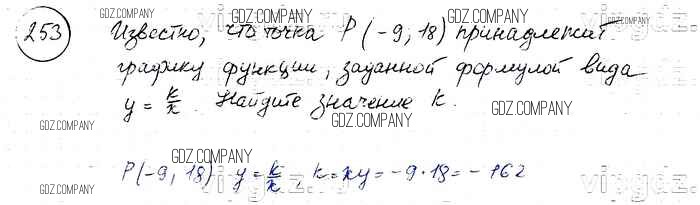 253 Известно, что точка P(-9, 18) принадлежит
графику функции, заданной формулой вида
y = k/x. Найдите значение k.
P(-9, 18) y = k/x, k = xy = -9·18 = -162
GDZ.COMPANY
GDZ.COMPANY
GDZ.COMPANY
GDZ.COMPANY
GDZ.COMPANY
GDZ.COMPANY
GDZ.COMPANY
GDZ.COMPANY